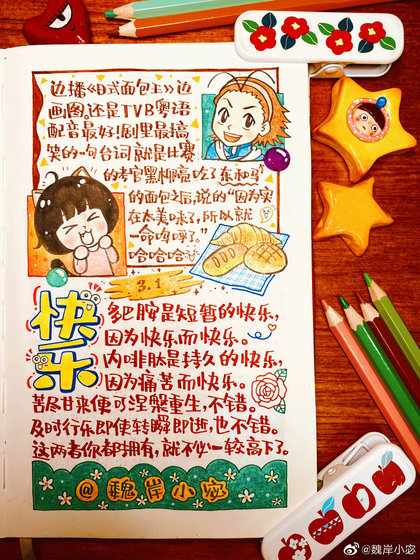 边播《日式面包王》边
画图,还是TVB粤语
配音最好!剧里最搞
笑的一句台词就是比赛
的考官黑柳高吃了东和马
的面包之后,说的“因为实
在太美味了,所以就
一命呜呼了。”
哈哈哈
3.1
快乐
多巴胺是短暂的快乐,
因为快乐而快乐。
内啡肽是持久的快乐,
因为痛苦而快乐。
苦尽甘来便可涅槃重生,不错。
及时行乐即使转瞬即逝,也不错。
这两者你都拥有,就不必一较高下了。
@魏岸小宓
@魏岸小宓